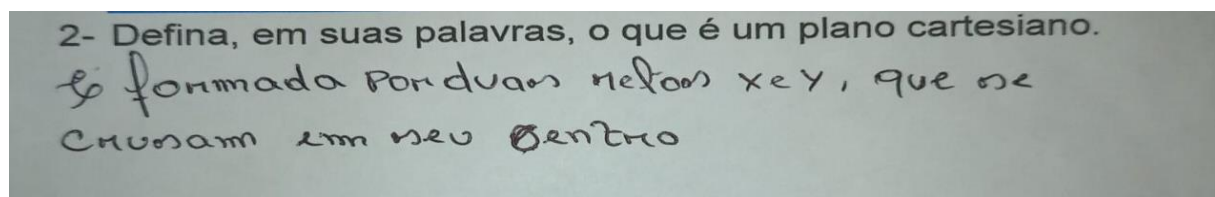 2- Defina, em suas palavras, o que é um plano cartesiano.
é formada por duas retas x e y, que se
crusam em seu centro